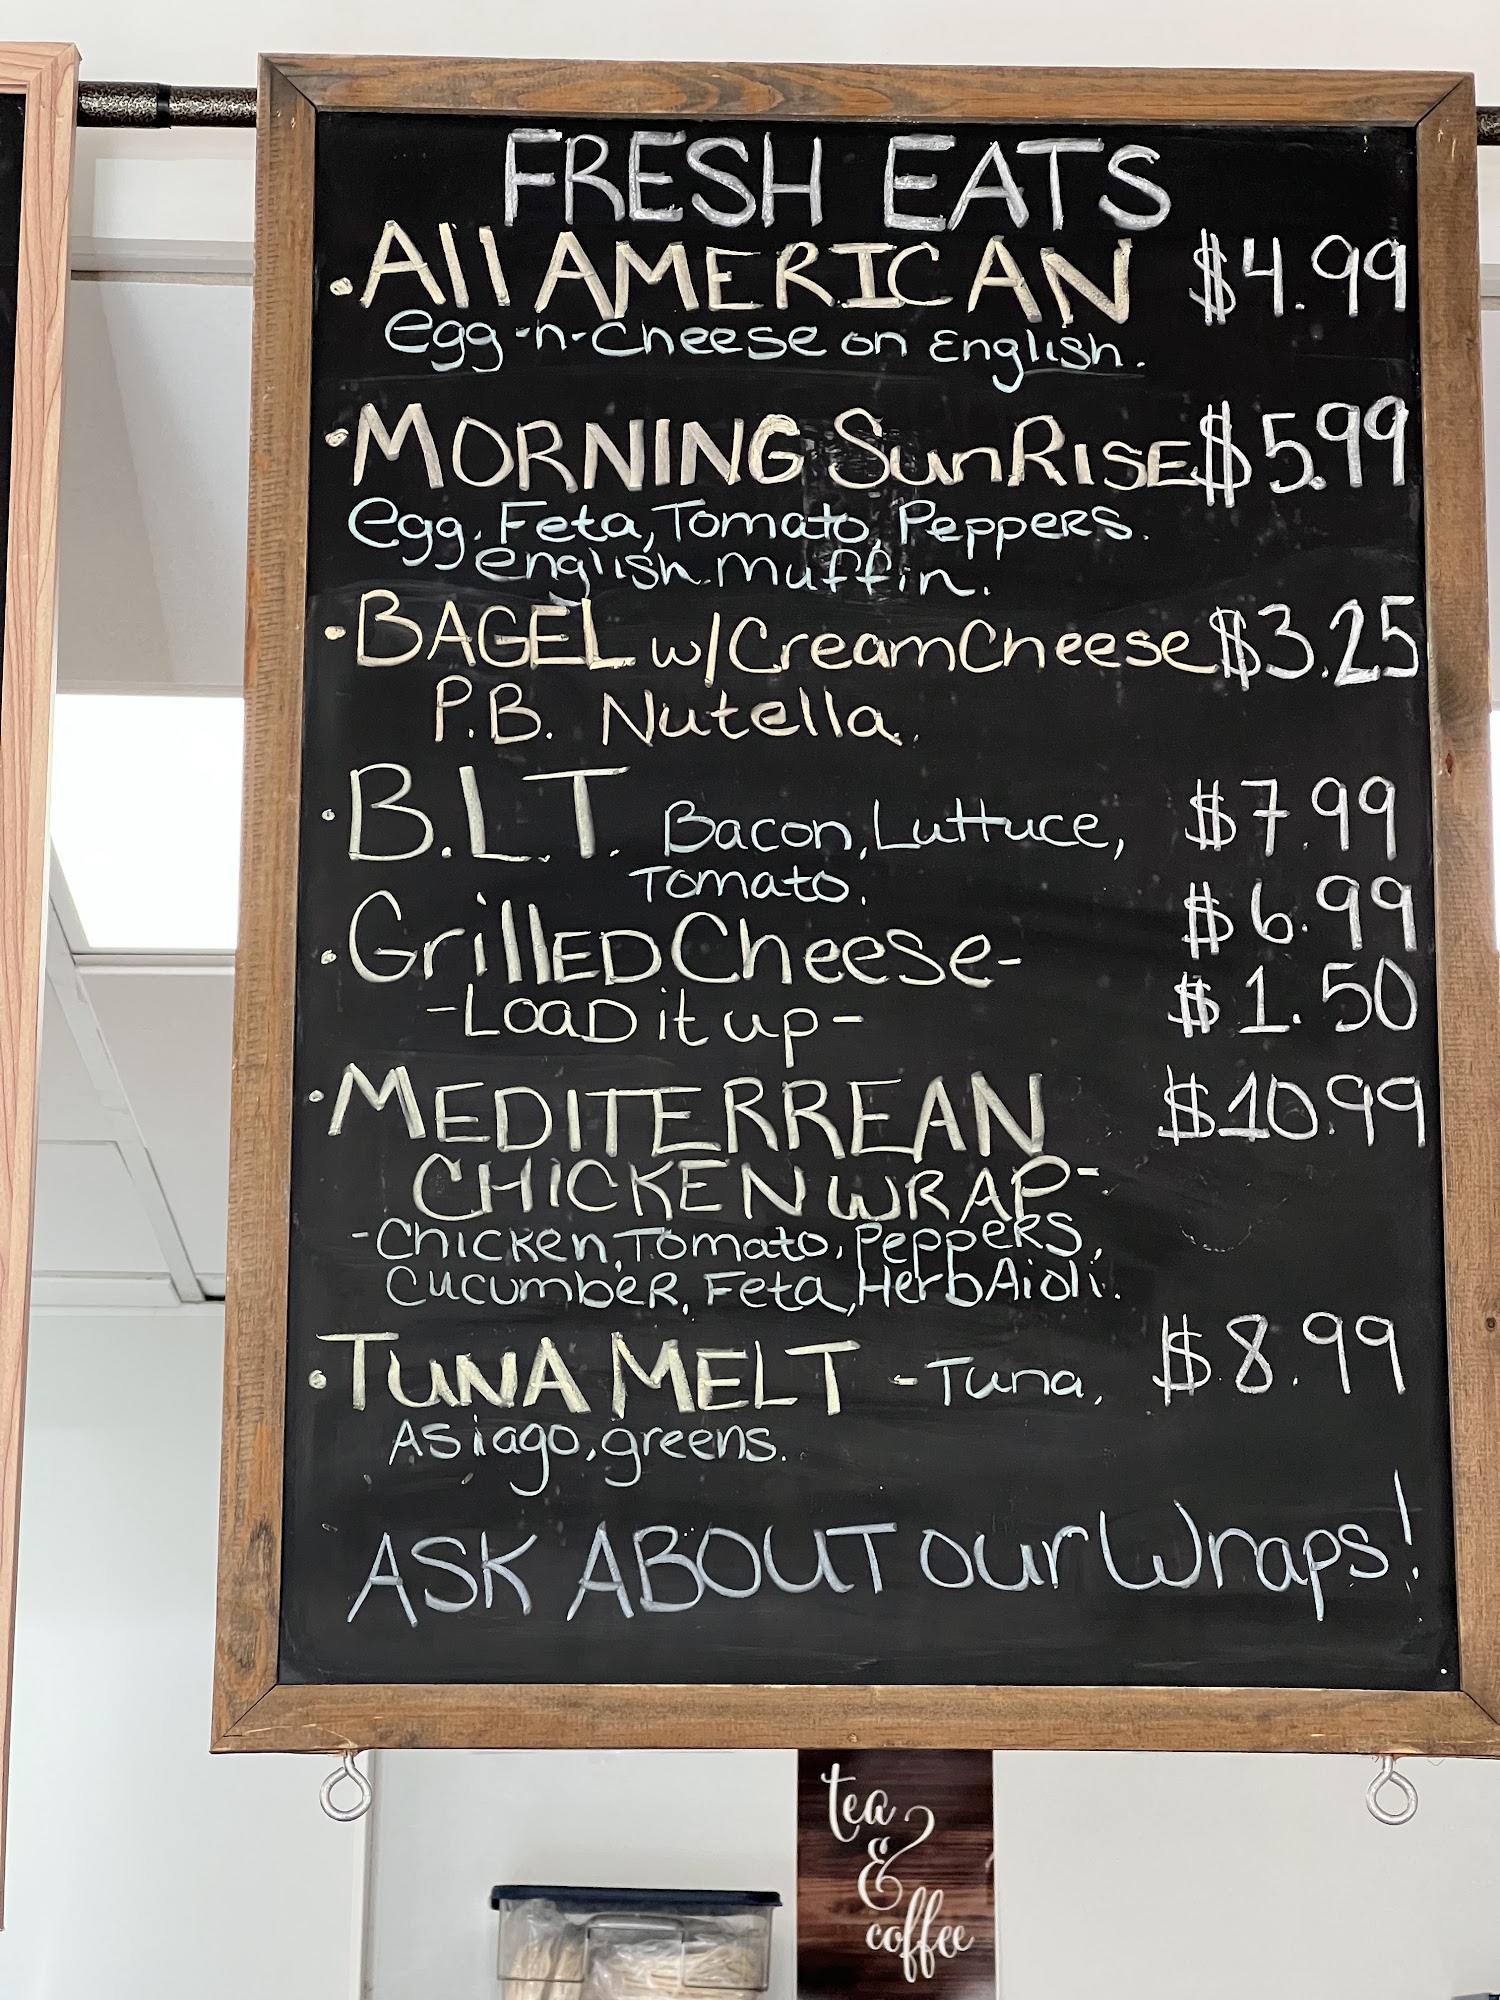 FRESH EATS
• All AMERICAN $4.99
egg-n-cheese on English.
• MORNING SunRISE $5.99
egg, Feta, Tomato, Peppers.
english muffin.
• BAGEL w/Cream Cheese $3.25
P.B. Nutella.
• B.L.T. Bacon, Luttuce, $7.99
Tomato.
• GrillED Cheese- $6.99
-LOaD it up- $1.50
• MEDITERREAN $10.99
CHICKEN WRAP-
-Chicken, Tomato, Peppers,
Cucumber, Feta, Herb Aioli.
• TUNA MELT -Tuna, $8.99
Asiago, greens.
ASK ABOUT our Wraps!
tea
&
coffee